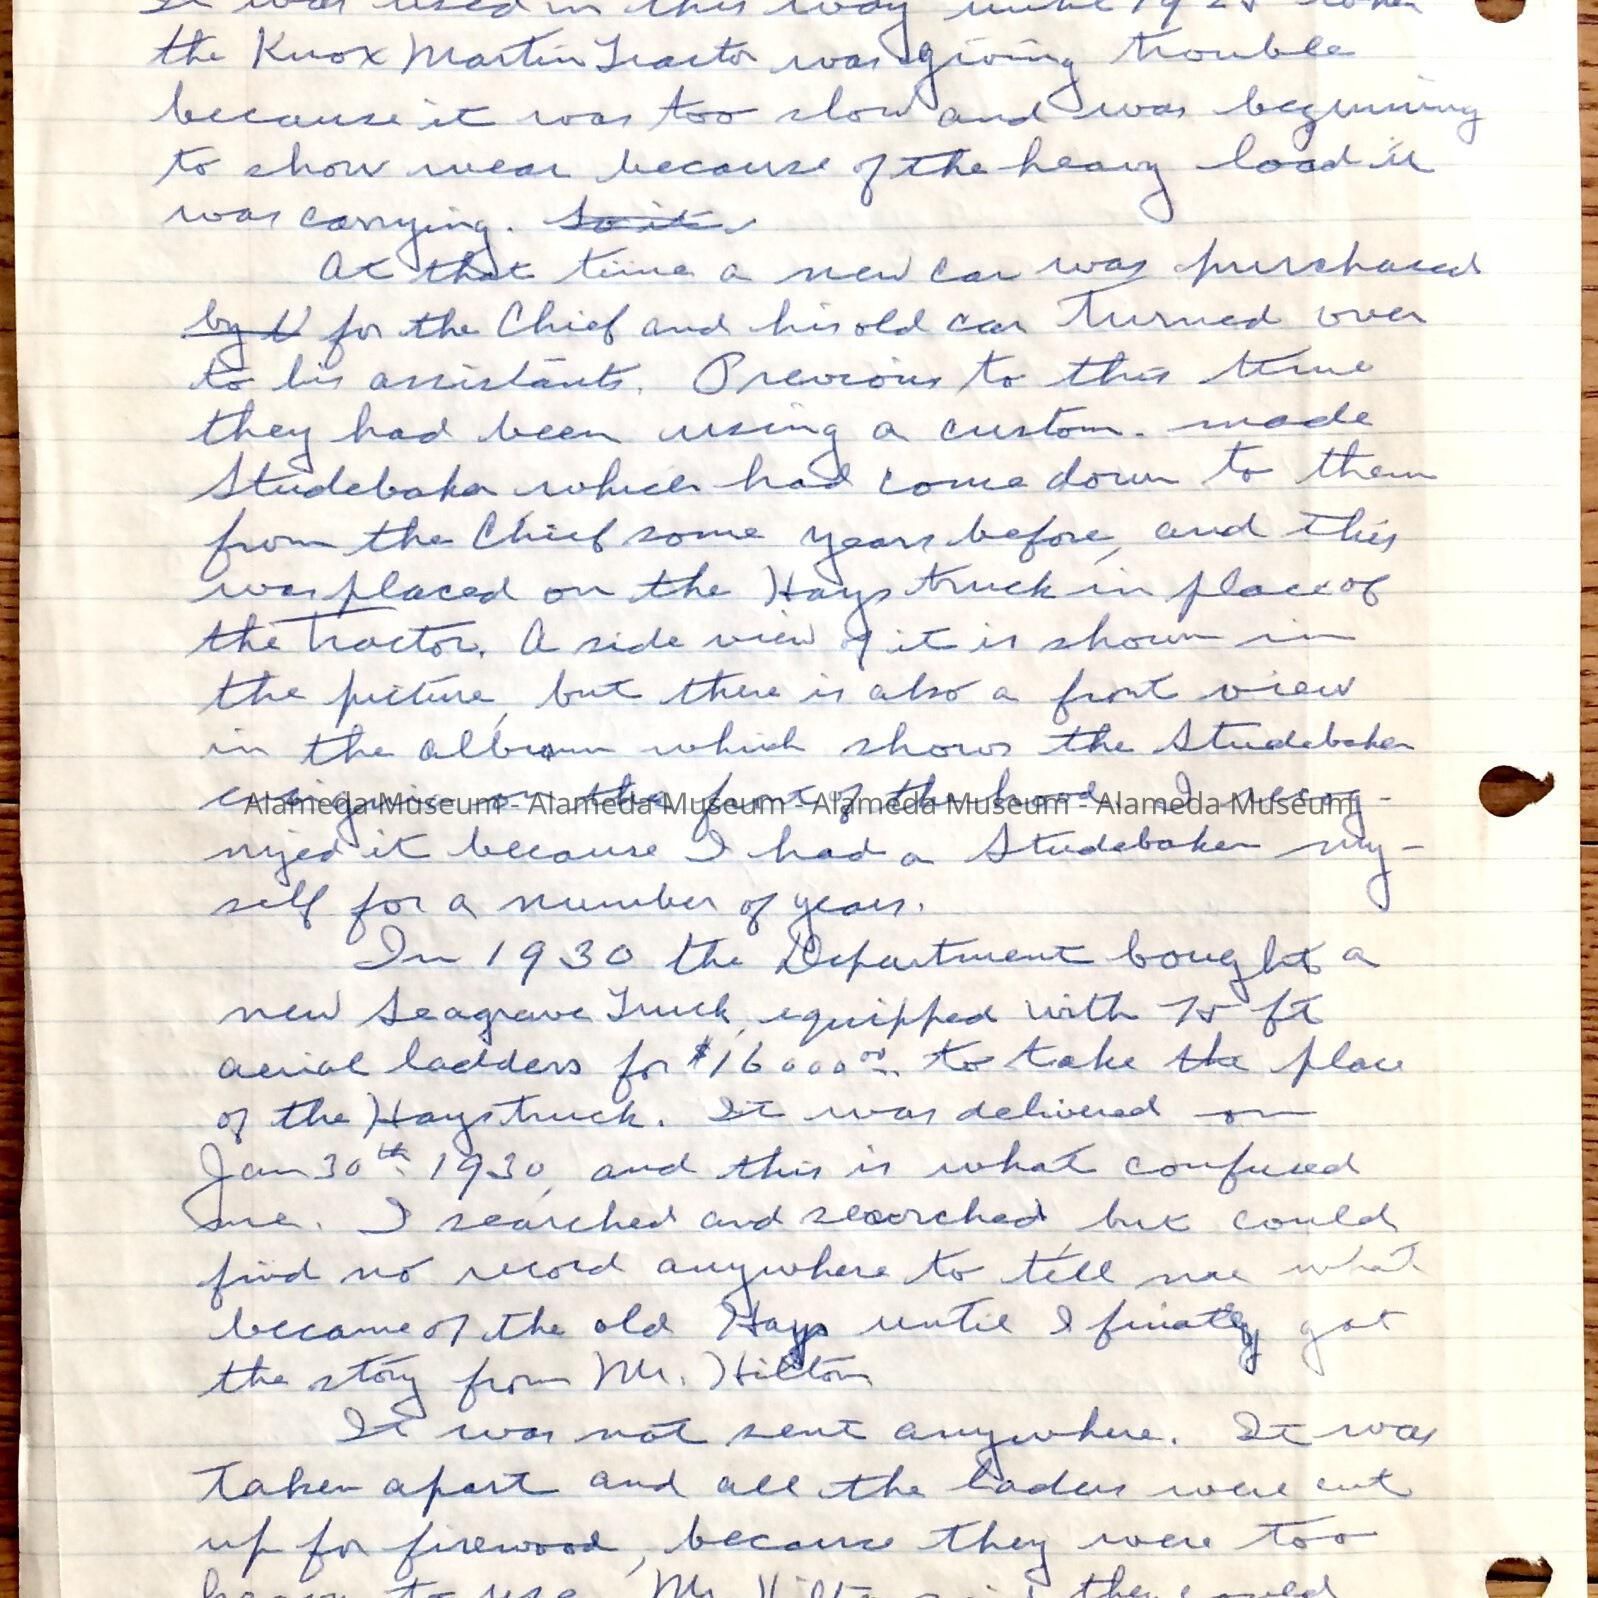 It was used in this way until 192 when
the Knox Martin Tractor was giving trouble
because it was too slow and was beginning
to show wear because of the heavy load it
was carrying. So it
At that time a new car was purchased
by t for the Chief and his old car turned over
to his assistants. Previous to this time
they had been using a custom-made
Studebaker which had come down to them
from the Chief some years before, and this
was placed on the Hays truck in place of
the Tractor. A side view of it is shown in
the picture, but there is also a front view
in the album which shows the Studebaker
ensignia on the front of the hood. I recog-
Alameda Museum - Alameda Museum - Alameda Museum - Alameda Museum
nized it because I had a Studebaker my-
self for a number of years.
In 1930 the Department bought a
new Seagrave Truck, equipped with 75 ft
aerial ladders for $16000.00 to take the place
of the Hays truck. It was delivered on
Jan 30th 1930, and this is what confused
me. I searched and searched, but could
find no record anywhere to tell me what
became of the old Hays until I finally got
the story from Mr. Hilton
It was not sent anywhere. It was
taken apart and all the laders were cut
up for firewood, because they were too
heavy to use. Mr Hilton said they could